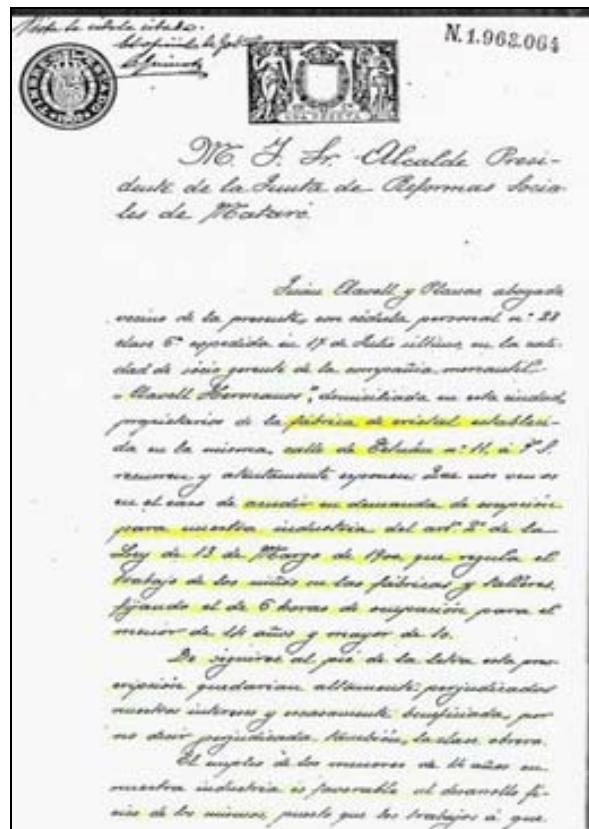 Vista la cédula citada.
N.1.963.064
M. I. Sr. Alcalde Presi-
dente de la Junta de Reformas Socia-
les de Mataró.
Juan Clavell y Planas abogado
vecino de la presente, con cédula personal nº 28
clase 6ª expedida en 17 de Julio último, en la cali-
dad de socio gerente de la compañía mercantil
"Clavell Hermanos", domiciliada en esta ciudad,
propietarios de la fábrica de cristal estableci-
da en la misma, calle de Tetuán nº 11, á V.S.
recurren y atentamente exponen: Que nos vemos
en el caso de acudir en demanda de
para nuestra industria del artº 2º de la
Ley de 13 de Marzo de 1900 que regula el
trabajo de los niños en las fábricas y talleres,
fijando el de 6 horas de ocupación para el
menor de 14 años y mayor de 10.
De seguirse al pié de la letra esta pres-
cripción quedarian altamente perjudicados
nuestros intereses y escasamente beneficiada, por
no decir perjudicada también, la clase obrera.
El empleo de los menores de 14 años en
nuestra industria es favorable al desarrollo fí-
sico de los mismos, puesto que los trabajos á que